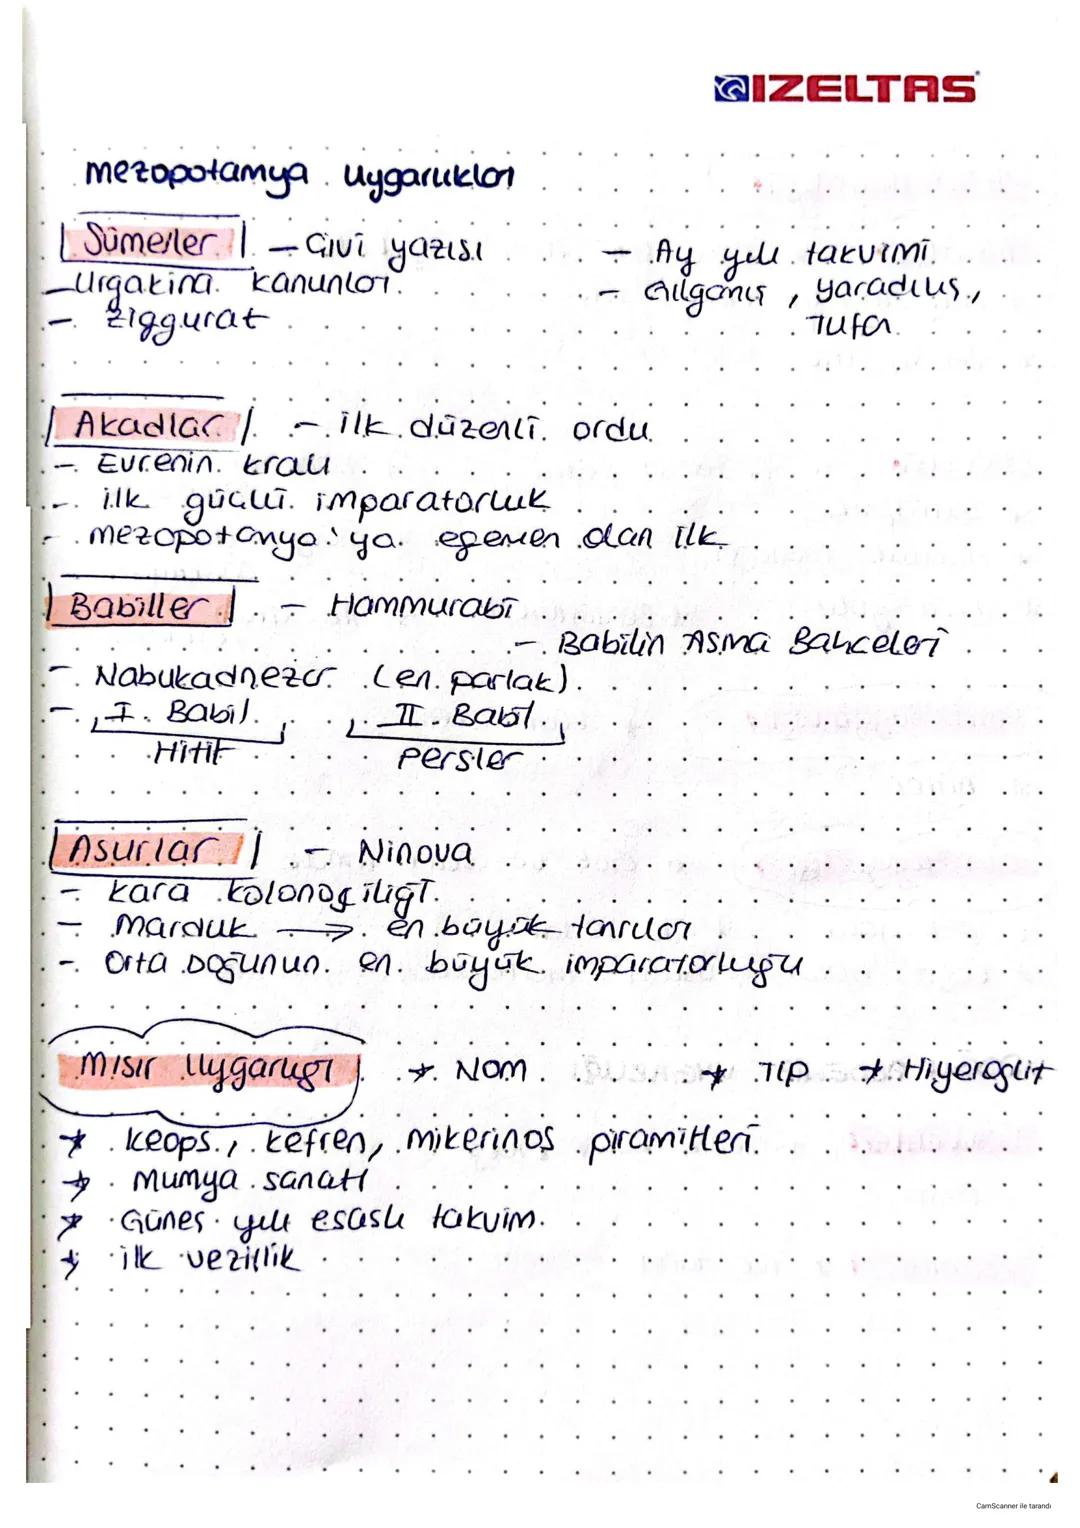 IZELTAS
mezopotamya uygarlıkları
Sümerler - Çivi yazısı - Ay yılı takvimi
- Urgakina kanunları - Gılgamış, yaradılış,
- Ziggurat Tufan
Akadlar - ilk düzenli ordu
- Evrenin kralı
- ilk güçlü imparatorluk
- mezopotamya'ya egemen olan ilk
Babiller - Hammurabi
- Babilin Asma Bahçeleri
- Nabukadnezar (en parlak)
- I. Babil II. Babil
Hitit Persler
Asurlar - Ninova
- kara koloniciliği
- Marduk → en büyük tanrıları
- Orta Doğunun en büyük imparatorluğu
Mısır Uygarlığı * Nom * TIP * Hiyeroglif
* Keops, kefren, mikerinos piramitleri
* Mumya sanatı
* Güneş yılı esaslı takvim
* ilk vezirlik
CamScanner ile tarandı